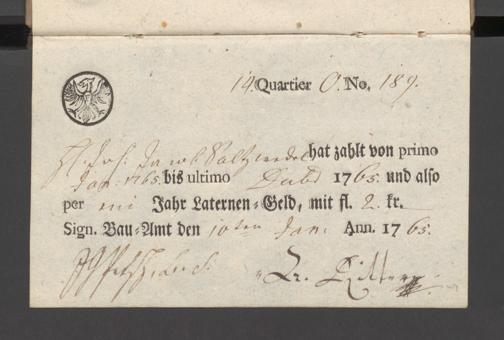 14. Quartier O. No. 189.
Jacob hat zahlt von primo
Jan: 1765. bis ultimo 1765. und also
per Jahr Laternen-Geld, mit fl. 2. kr.
Sign. Bau-Amt den 10ten Jan: Ann. 1765.